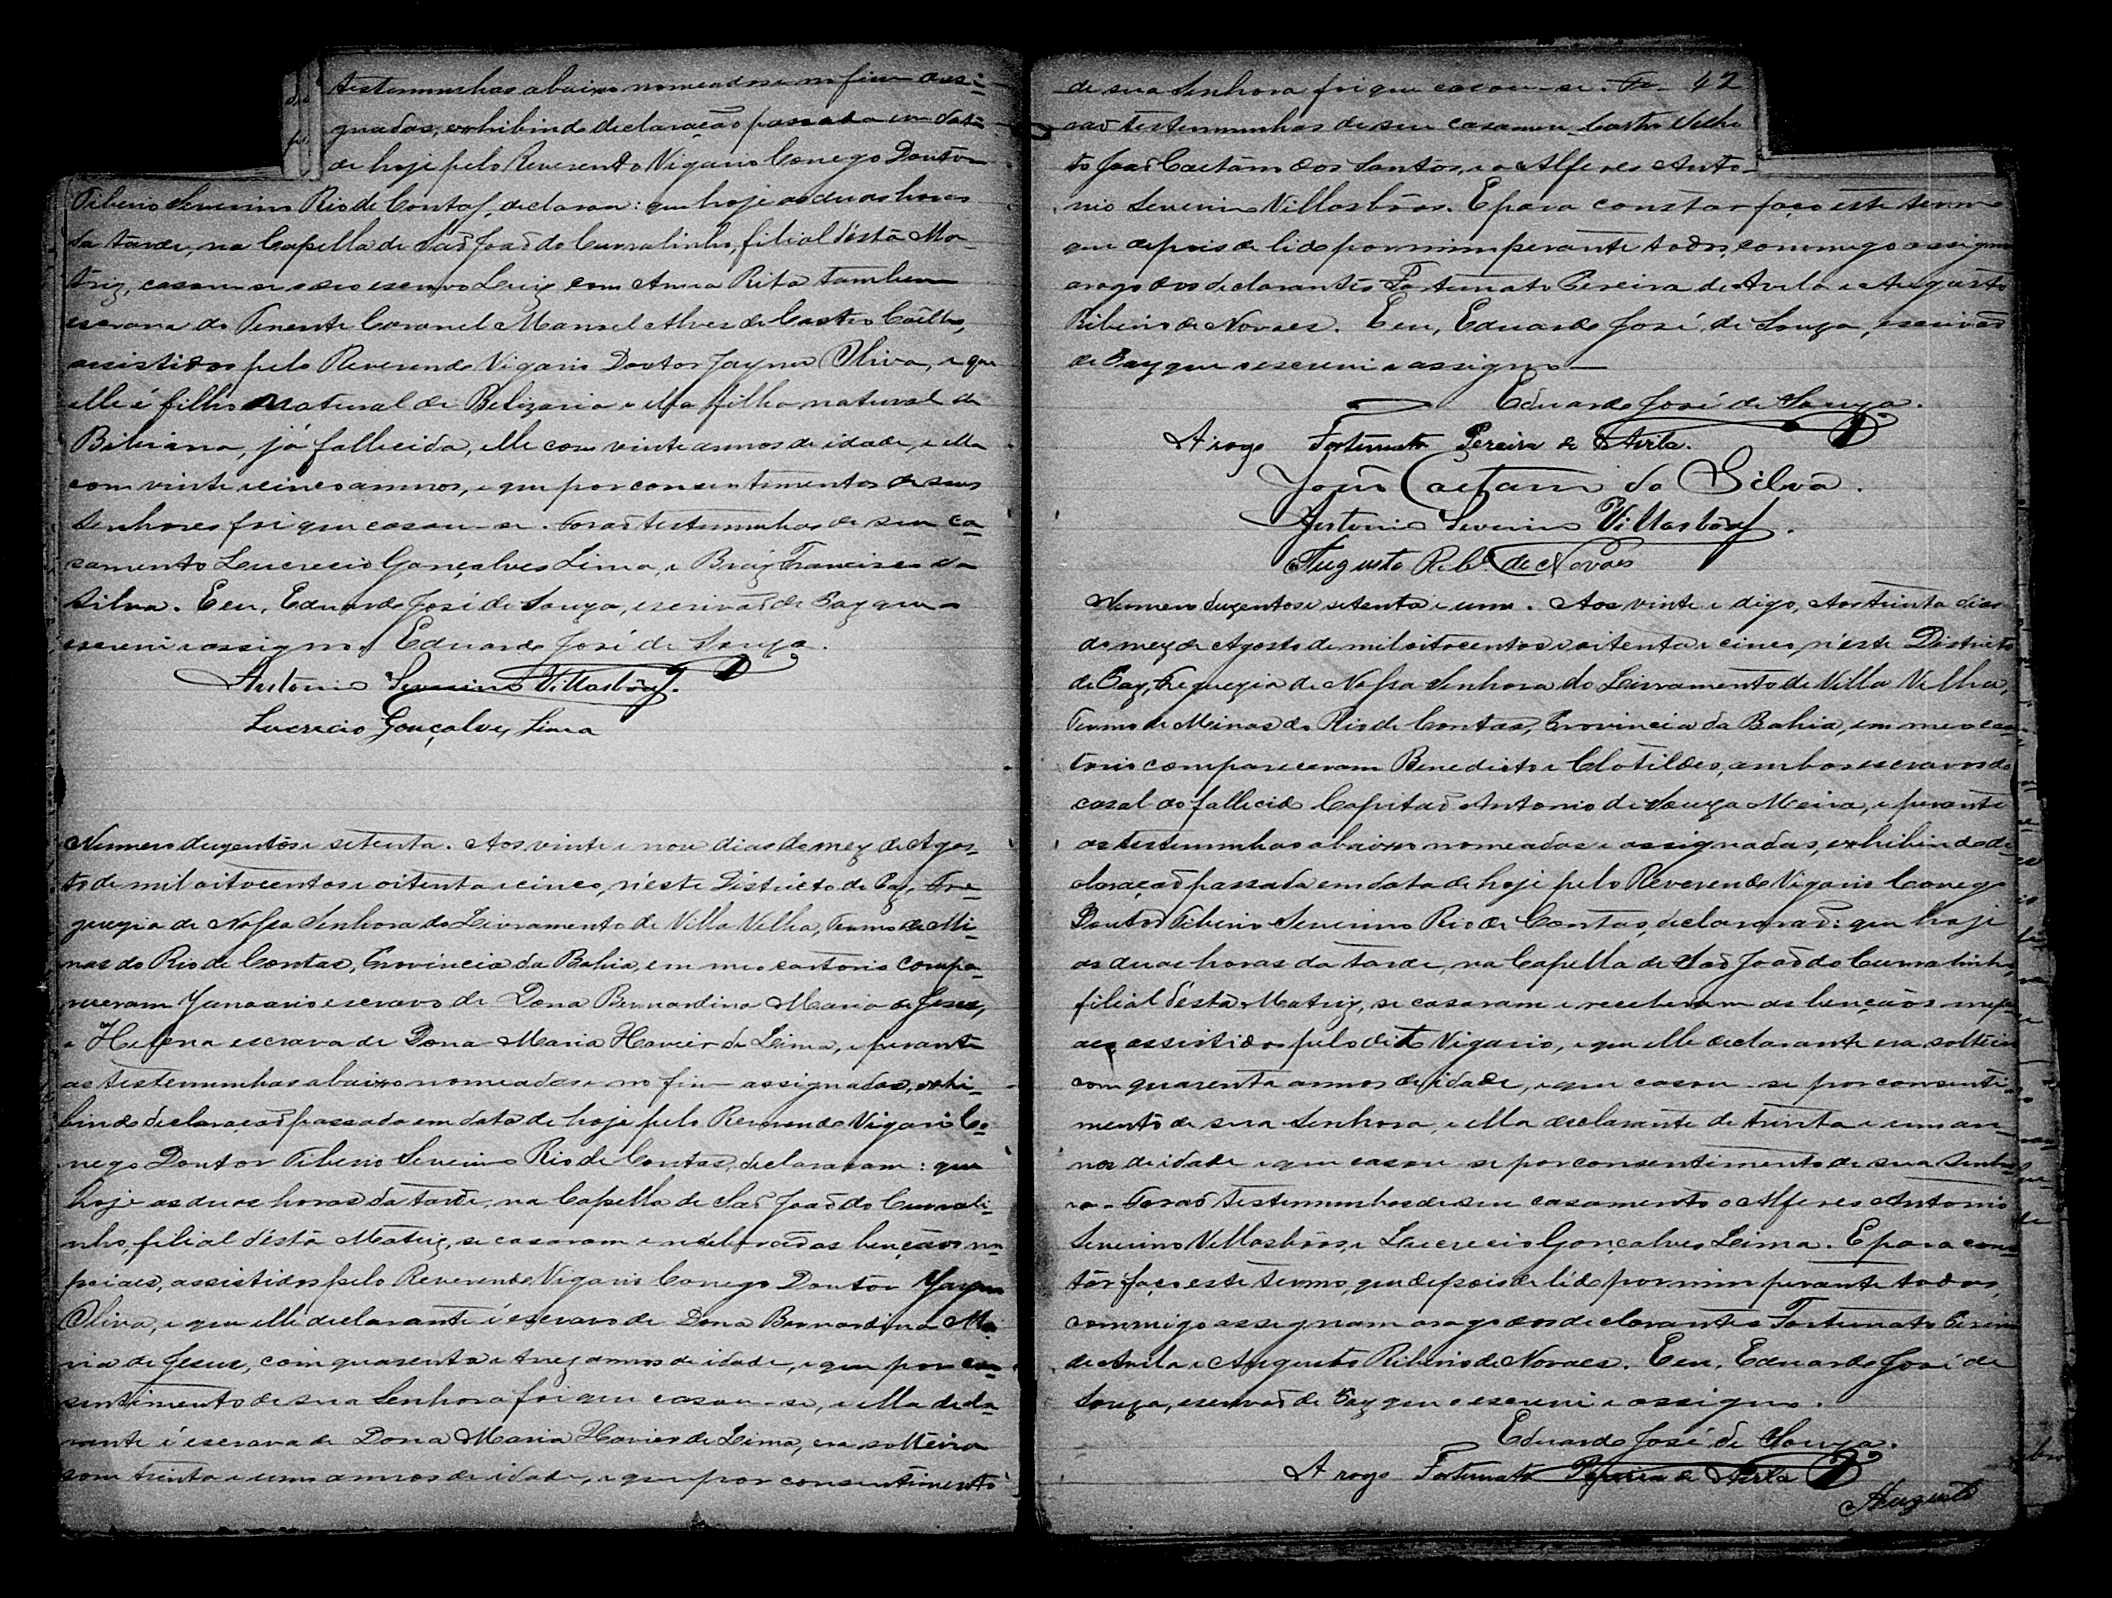 testemunhas abaixo nomeadas e no fim assi-
gnadas, exhibindo declaração passada em data
de hoje pelo Reverendo Vigario Conego Doutor
Tiberio Severino Rio de Contas, declarou: que hoje as duas horas
da tarde, na Capella de São João do Curralinho, filial d'ésta Ma-
triz, casou-se o seo escravo Luiz com Anna Rita tambem
escrava do Tenente Coronel Manoel Alves de Castro Coêlho,
assistidos pelo Reverendo Vigario Doutor Jayme Oliva, e que
elle é filho natural de Belizaria e ella filha natural de
Bibiana, já fallecida, elle com vinte annos de idade, e ella
com vinte e cinco annos, e que por consentimentos de seus
Senhores foi que casou-se. Forão testemunhas de seu ca-
samento Lucrecio Gonçalves Lima, e Braz Francisco da
Silva. E eu, Eduardo José de Souza, escrivão de Paz que o
escrevi e assigno. Eduardo José de Souza.
Antonio Severino Villasbôas.
Lucrecio Gonçalves Lima
Numero duzentos e setenta. Aos vinte e nove dias do mez de Agos-
to de mil oitocentos e oitenta e cinco, n'éste Districto de Paz, Fre-
guezia de Nossa Senhora do Livramento de Villa Velha, Termo de Mi-
nas do Rio de Contas, Provincia da Bahia, em meo cartorio compa-
receram Januario escravo de Dona Bernardina Maria de Jesus,
e Helena escrava de Dona Maria Xavier de Lima, e perante
as testemunhas abaixo nomeadas e no fim assignadas, exhi-
bindo declaração passada em data de hoje pelo Reverendo Vigario Co-
nego Doutor Tiberio Severino Rio de Contas, declararam: que
hoje as duas horas da tarde, na Capella de São João do Currali-
nho, filial d'ésta Matriz, se casaram e receberão as bençãos nu-
pciaes, assistidos pelo Reverendo Vigario Conego Doutor Jayme
Oliva, e que elle declarante é escravo de Dona Bernardina Ma-
ria de Jesus, com quarenta e trez annos de idade, e que por con-
sentimento de sua Senhora foi que casou-se, e ella decla-
rante é escrava de Dona Maria Xavier de Lima, era solteira
com trinta e um annos de idade, e que por consentimento
de sua Senhora foi que casou-se. Fo- 42
rão testemunhas de seu casamen- Castro Velho
to João Caetano dos Santos, e o Alferes Anto-
nio Severino Villasbôas. E para constar faço este termo
que depois de lido por mim perante todos, commigo assignam
arogo dos declarantes Fortunato Pereira de Avila e Augusto
Ribeiro de Novaes. E eu, Eduardo José de Souza, escrivão
de Paz que o escrevi e assigno
Eduardo José de Souza.
A rogo Fortunato Pereira de Avila.
João Caetano da Silva.
Antonio Severino Villasbôas.
Augusto Ribº de Novaes
Numero duzentos e setenta e um. Aos vinte e digo, Aos trinta dias
do mez de Agosto de mil oitocentos e oitenta e cinco, n'éste Districto
de Paz, Freguezia de Nossa Senhora do Livramento de Villa Velha,
Termo de Minas do Rio de Contas, Provincia da Bahia, em meo car-
torio compareceram Benedicto e Clotildes, ambos escravos do
casal do fallecido Capitão Antonio de Souza Meira, e perante
as testemunhas abaixo nomeadas e assignadas, exhibindo de-
claração passada em data de hoje pelo Reverendo Vigario Conego
Doutor Tiberio Severino Rio de Contas, declararão: que hoje
as duas horas da tarde, na Capella de São João do Curralinho,
filial d'ésta Matriz, se casaram e receberam as bençãos nup-
aes assistidos pelo dito Vigario, e que elle declarante era solteiro
com quarenta annos de idade, e que casou-se por consenti-
mento de sua Senhora, e ella declarante de trinta e um an-
nos de idade e que casou-se por consentimento de sua Senho-
ra. Forão testemunhas de seu casamento o Alferes Antonio
Severino Villasbôas, e Lucrecio Gonçalves Lima. E para cons-
tar faço este termo, que depois de lido por mim perante todos,
commigo assignam arogo dos declarantes Fortunato Pereira
de Avila e Augusto Ribeiro de Novaes. E eu, Eduardo José de
Souza, escrivão de Paz que o escrevi e assigno.
Eduardo José de Souza.
A rogo Fortunato Pereira de Avila
Augusto